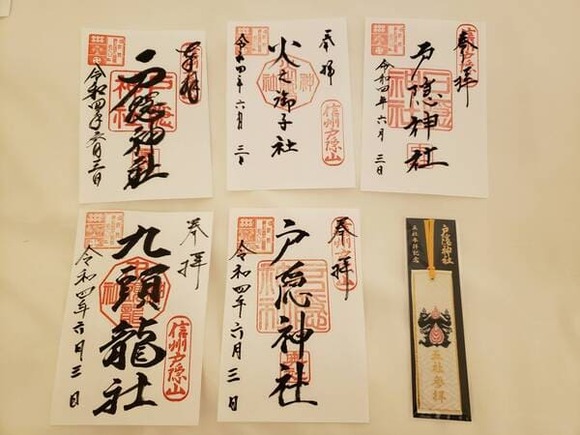 奉拝
戸隠神社
令和四年六月三日
奉拝
火之御子社
令和四年六月三日
信州戸隠山
奉拝
戸隠神社
令和四年六月三日
奉拝
九頭龍社
令和四年六月三日
信州戸隠山
奉拝
戸隠神社
令和四年六月三日
戸隠神社
五社参拝記念
五社参拝